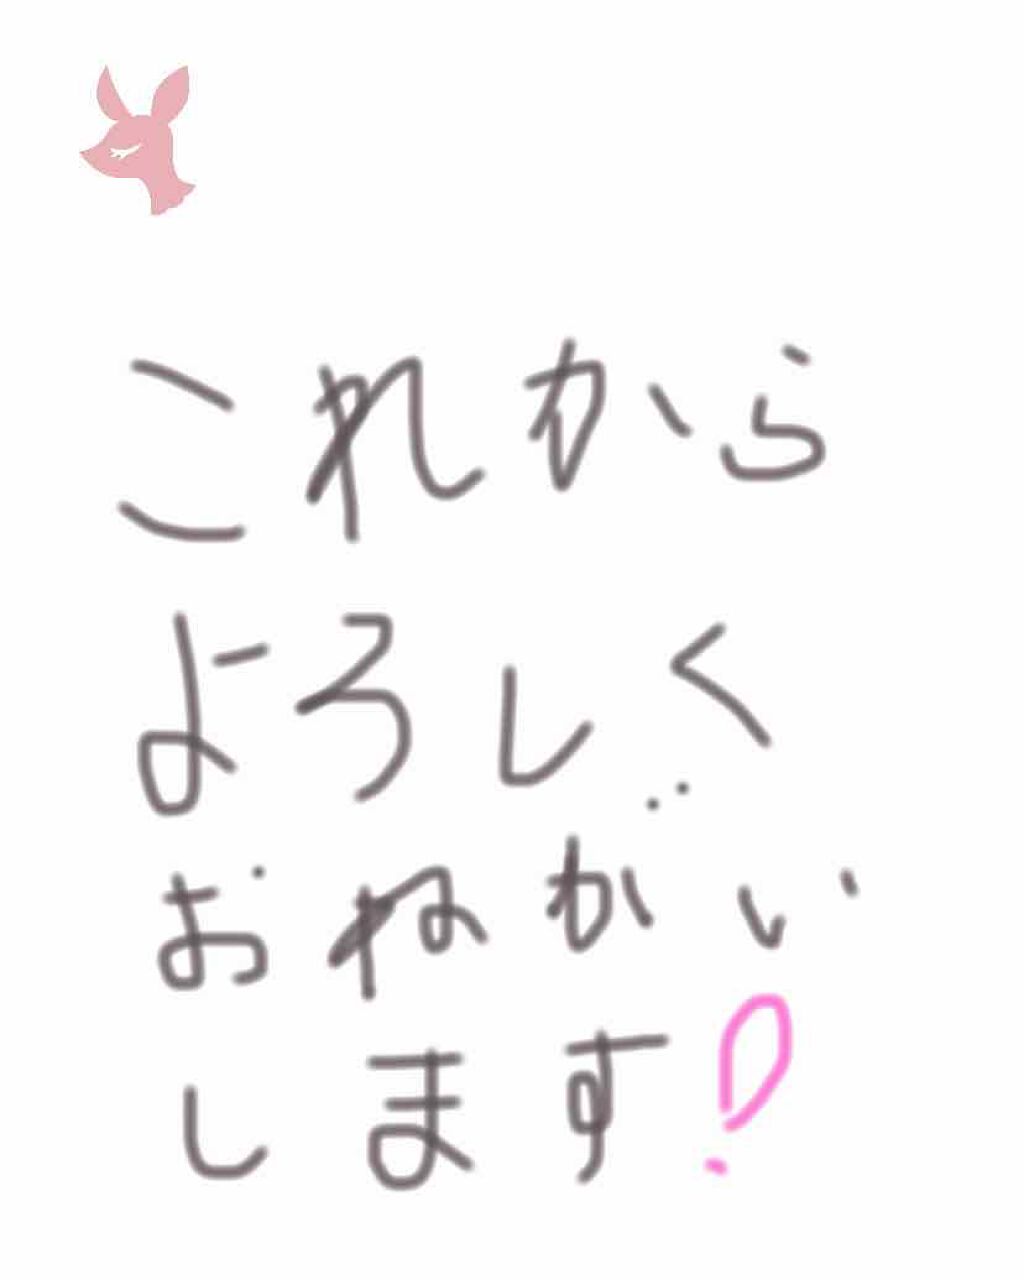 これから
よろしく
おねがい
します!